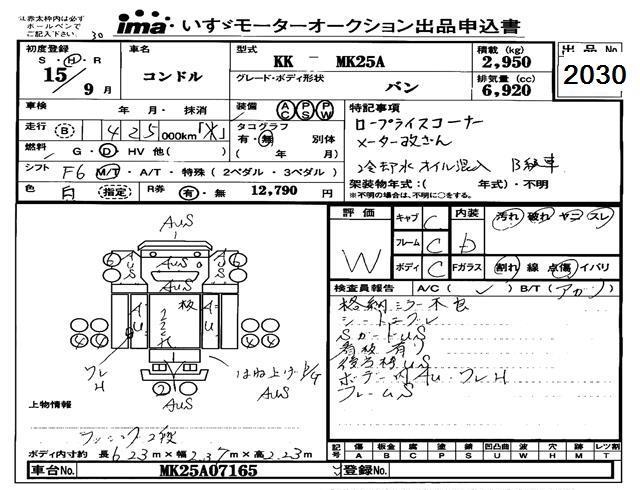 注赤太枠内は必ず
ボールペンで
ご記入下さい。
30
ima いすゞモーターオークション出品申込書
初度登録
S・H・R
15/9月
車名
コンドル
型式
KK － MK25A
積載 (kg)
2,950
出品No
2030
グレード・ボディ形状
バン
排気量 (cc)
6,920
車検 年 月・ 抹消
装備 AC PS PW
特記事項
ロープライスコーナー
メーター改ざん
冷却水オイル混入 B級車
走行 (B) 1425 000km
タコグラフ
有・無 別体
( 年 月)
燃料 G・D・HV 他( )
シフト F6 M/T・A/T・特殊 ( 2ペダル・3ペダル )
架装物年式:( 年式)・不明
※不明の場合は、不明に○をする。
色 白 指定 R券 有・無 12,790 円
評価
W
キャブ C
フレーム C
ボディ C
内装 D
Fガラス
汚れ 破れ ヤニ スレ
割れ 線 点傷 イバリ
検査員報告 A/C ( ) B/T (
格納ミラー不良
看板有り
AUS
AUS
AUS
板
フレH
はね上げP/G
AUS
上物情報
ボディ内寸約 長 6.23m × 幅 2.37m × 高 2.23m
記号 傷 板金 腐 塗 錆 凹 凹凸曲 波 穴 跡 レツ割
A B C P S U W H M T
車台No. MK25A07165 登録No.